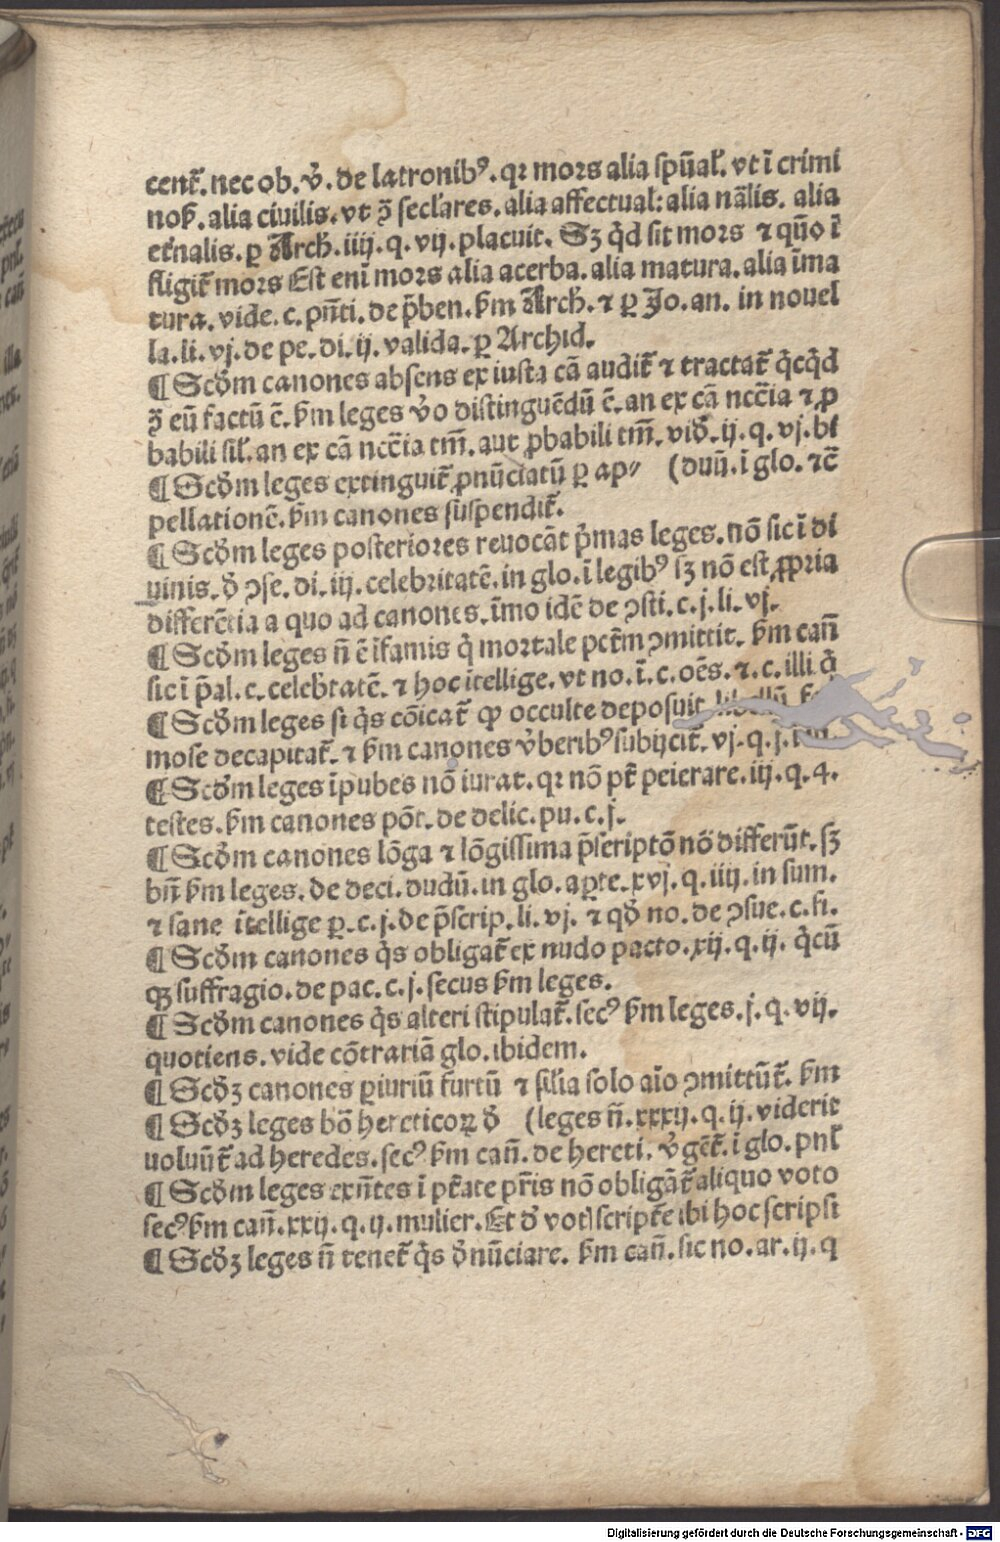 cent᷑. nec ob. v̓. de latronibꝰ. qꝛ mors alia spūal᷑. vt ī crimi
noẜ. alia ciuilis. vt ꝫ̄ secl̓ares. alia affectual᷑: alia nālis. alia
et̓nalis. ꝑ Arch̓. iiij. q. vij. placuit. Sꝫ q̓d sit mors ⁊ quō ī
fligit᷑ mors Est enī mors alia acerba. alia matura. alia īma
tura. vide. c. pn̄ti. de p̄ben. ẜm Arch̓. ⁊ ꝑ Jo. an. in nouel
la. li. vj. de pe. di. ij. valida. ꝑ Archid.
¶ Scd̓m canones absens ex iusta cā audit᷑ ⁊ tractat᷑ q̓cq̓d
ꝫ̄ eū factū ē. ẜm leges v̓o distinguēdū ē. an ex cā nccīa ⁊ ꝓ
babili sil᷑. an ex cā nccīa tm̄. aut ꝓbabili tm̄. vid̓. ij. q. vj. bi
¶ Scd̓m leges extinguit᷑ ꝓnūciatū ꝑ ap⸗ (duū. ī glo. ⁊c̄
pellationē. ẜm canones suspendit᷑.
¶ Scd̓m leges posteriores reuocāt p̓mas leges. nō sic ī di
uinis. d̓ ↄse. di. iij. celebritatē. in glo. ī legibꝰ sꝫ nō est ꝓpria
differētia a quo ad canones. īmo idē de ↄsti. c. j. li. vj.
¶ Scd̓m leges n̄ ē īfamis q̓ mortale pct̄m ↄmittit. ẜm can̄
sic ī p̄al. c. celeb̓tatē. ⁊ hoc ītellige. vt no. ī. c. oēs. ⁊. c. illi q̓
¶ Scd̓m leges si q̓s cōicat᷑ ꝙ occulte deposuit libellū
mose decapitat᷑. ⁊ ẜm canones v̓beribꝰ subijcit᷑. vj. q. j.
¶ Scd̓m leges īpubes nō iurat. qꝛ nō pt̄ peierare. iij. q. 4.
testes. ẜm canones pōt. de delic. pu. c. j.
¶ Scd̓m canones lōga ⁊ lōgissima p̄scriptō nō differūt. sꝫ
bn̄ ẜm leges. de deci. dudū. in glo. aꝑte. xvj. q. iiij. in sum.
⁊ sane ītellige ꝑ. c. j. de p̄scrip. li. vj. ⁊ qd̓ no. de ↄsue. c. fi.
¶ Scd̓m canones q̓s obligat᷑ ex nudo pacto. xij. q. ij. q̓cū
qꝫ suffragio. de pac. c. j. secus ẜm leges.
¶ Scd̓m canones q̓s alteri stipulat᷑. secꝰ ẜm leges. j. q. vij.
quotiens. vide cōtrariā glo. ibidem.
¶ Scd̓ꝫ canones ꝑiuriū furtū ⁊ sil̓ia solo aīo ↄmittūt᷑. ẜm
¶ Scd̓ꝫ leges bō hereticoꝝ d̓ (leges n̄. xxxij. q. ij. viderit
uoluūt᷑ ad heredes. secꝰ ẜm can̄. de hereti. v̓gēt᷑. ī glo. pnl᷑
¶ Scd̓m leges exn̄tes ī pt̄ate pr̄is nō obligāt᷑ aliquo voto
secꝰ ẜm can̄. xxij. q. ij. mulier. Et d̓ voti script̄e ibi hoc scripsi
¶ Scd̓ꝫ leges n̄ tenet᷑ q̓s d̓nūciare. ẜm can̄. sic no. ar. ij. q
Digitalisierung gefördert durch die Deutsche Forschungsgemeinschaft - DFG